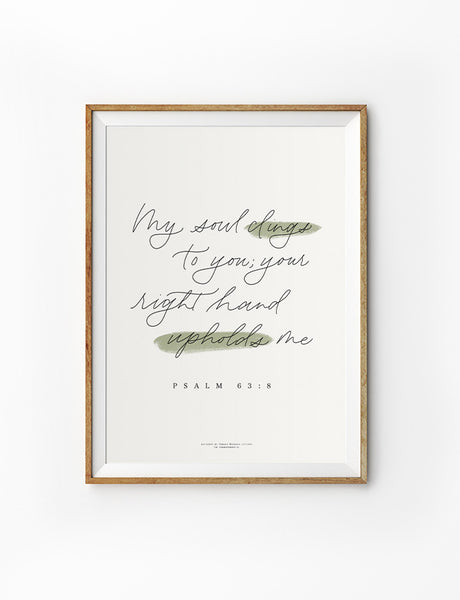 My soul clings
to you; your
right hand
upholds me
PSALM 63:8